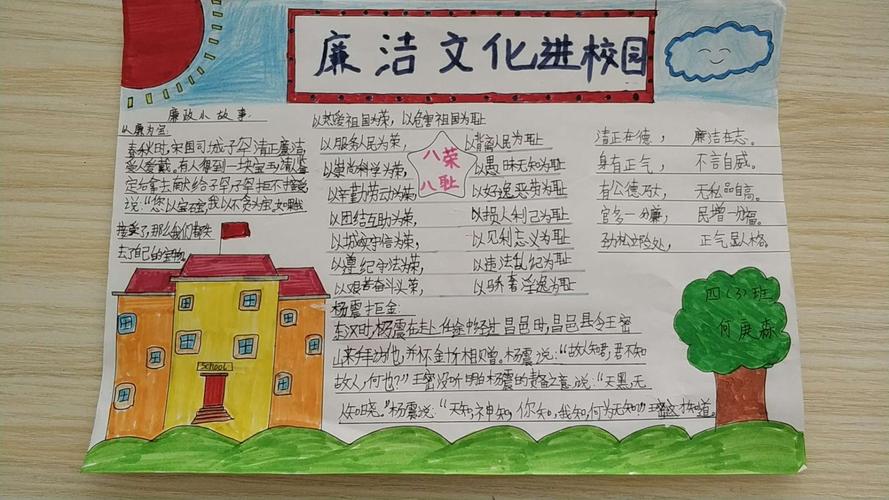 廉洁文化进校园
廉政小故事:
以廉为宝:
春秋时,宋国司城子罕清正廉洁,
受人爱戴。有人得到一块宝玉,请人鉴
定后拿去献给子罕,子罕拒不接受,
说:“您以宝石为宝,我以不贪为宝。如果我
接受了,那么我们都失
去了自己的宝物。
以热爱祖国为荣,以危害祖国为耻
以服务人民为荣,以背离人民为耻
以崇尚科学为荣,以愚昧无知为耻
以辛勤劳动为荣,以好逸恶劳为耻
以团结互助为荣,以损人利己为耻
以诚实守信为荣,以见利忘义为耻
以遵纪守法为荣,以违法乱纪为耻
以艰苦奋斗为荣,以骄奢淫逸为耻
八荣
八耻
清正在德,廉洁在志。
身有正气,不言自威。
有公德乃大,无私品自高。
官多一分廉,民增一分福。
劲松立险处,正气显人格。
杨震拒金:
东汉时,杨震在赴任途中经过昌邑时,昌邑县令王密
来拜访他,并怀金十斤相赠。杨震说:“故人知君,君不知
故人,何也?”王密没听明白杨震的责备之意,说:“天黑,无
人知晓。”杨震说:“天知,神知,你知,我知,何为无知?”王密这才知道。
School
四(3)班
何庚森